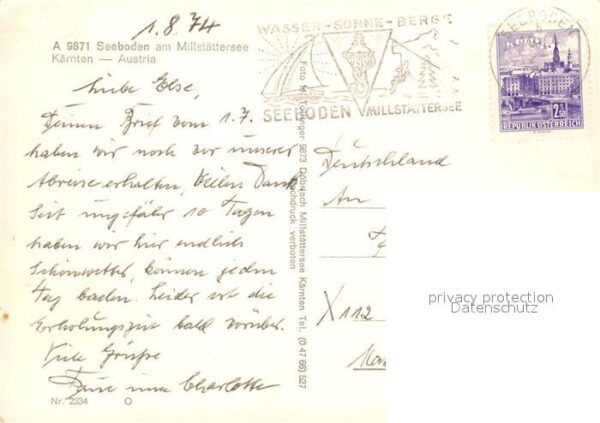 1.8.74
A 9871 Seeboden am Millstättersee
Kärnten — Austria
Liebe Else,
Deinen Brief vom 1.7.
haben wir noch vor unserer
Abreise erhalten, Vielen Dank
Seit ungefähr 10 Tagen
haben wir hier endlich
Schönwetter, können jeden
Tag baden. Leider ist die
Erholungszeit bald vorüber.
Viele Grüsse
Charlotte
Nr. 2334 O
9873 Döbriach Millstättersee Kärnten Tel. (0 47 66) 527
verboten
WASSER-SONNE-BERGE
SEEBODEN MILLSTÄTTERSEE
2.50
REPUBLIK ÖSTERREICH
Deutschland
An
X 112
privacy protection
Datenschutz